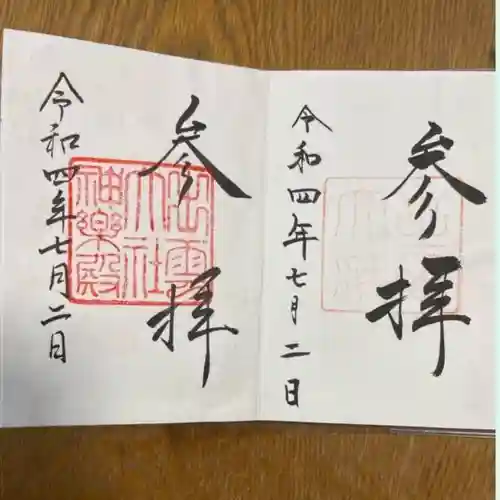 参拝
令和四年七月二日
参拝
出雲
大社
神楽殿
令和四年七月二日